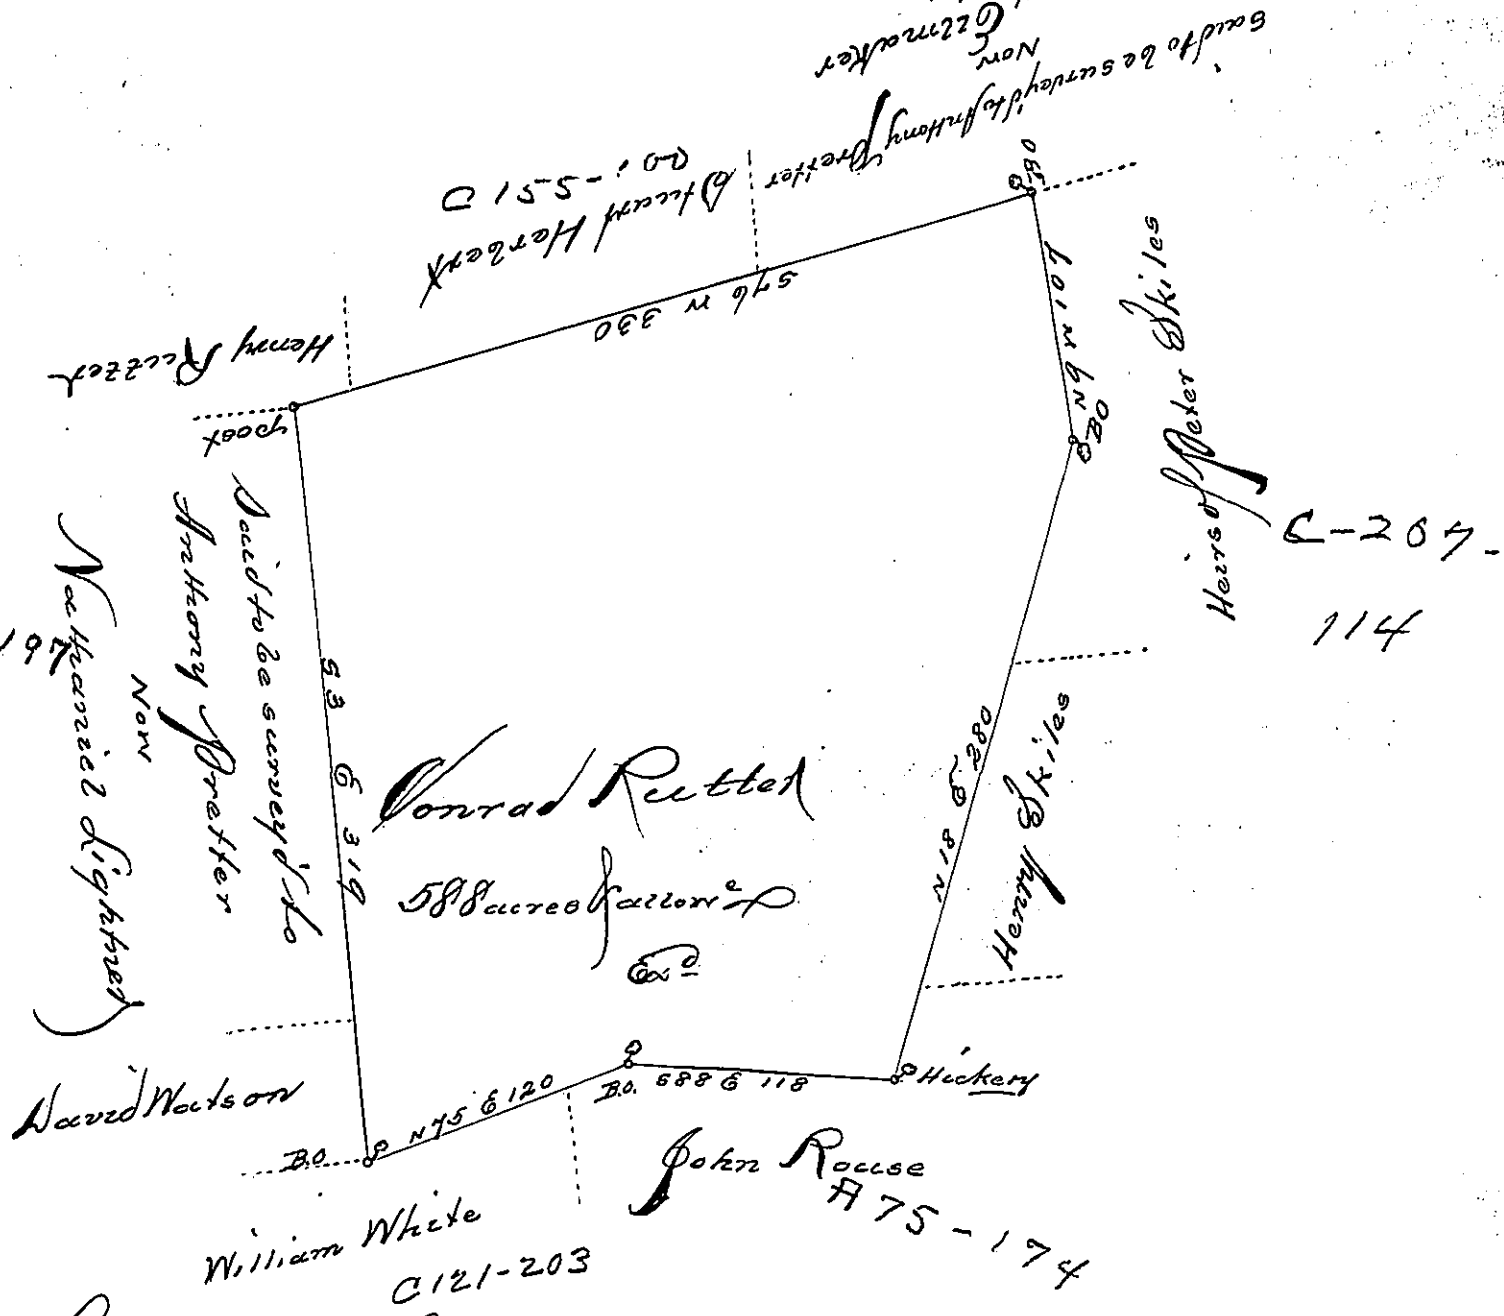 Said to be survey'd to Anthony Pretter
Now
Eilmaker
Stuart Herbert
Co: -551 D
Henry Ruzzer
S 76 W 330
post
W.O
N 9 W 107
B.O
Heirs of Peter Skiles
C-207-
114
Said to be survey'd to
Anthony Pretter
Now
Nathaniel Lightner
197
S 3 E 319
Conrad Rutter
588 acres & allowce
Exd
N 18 E 280
Henry Skiles
David Watson
B.O.
N 75 E 120
B.O.
S 88 E 118
Hickery
John Rouse
A 75-174
William White
C 121-203